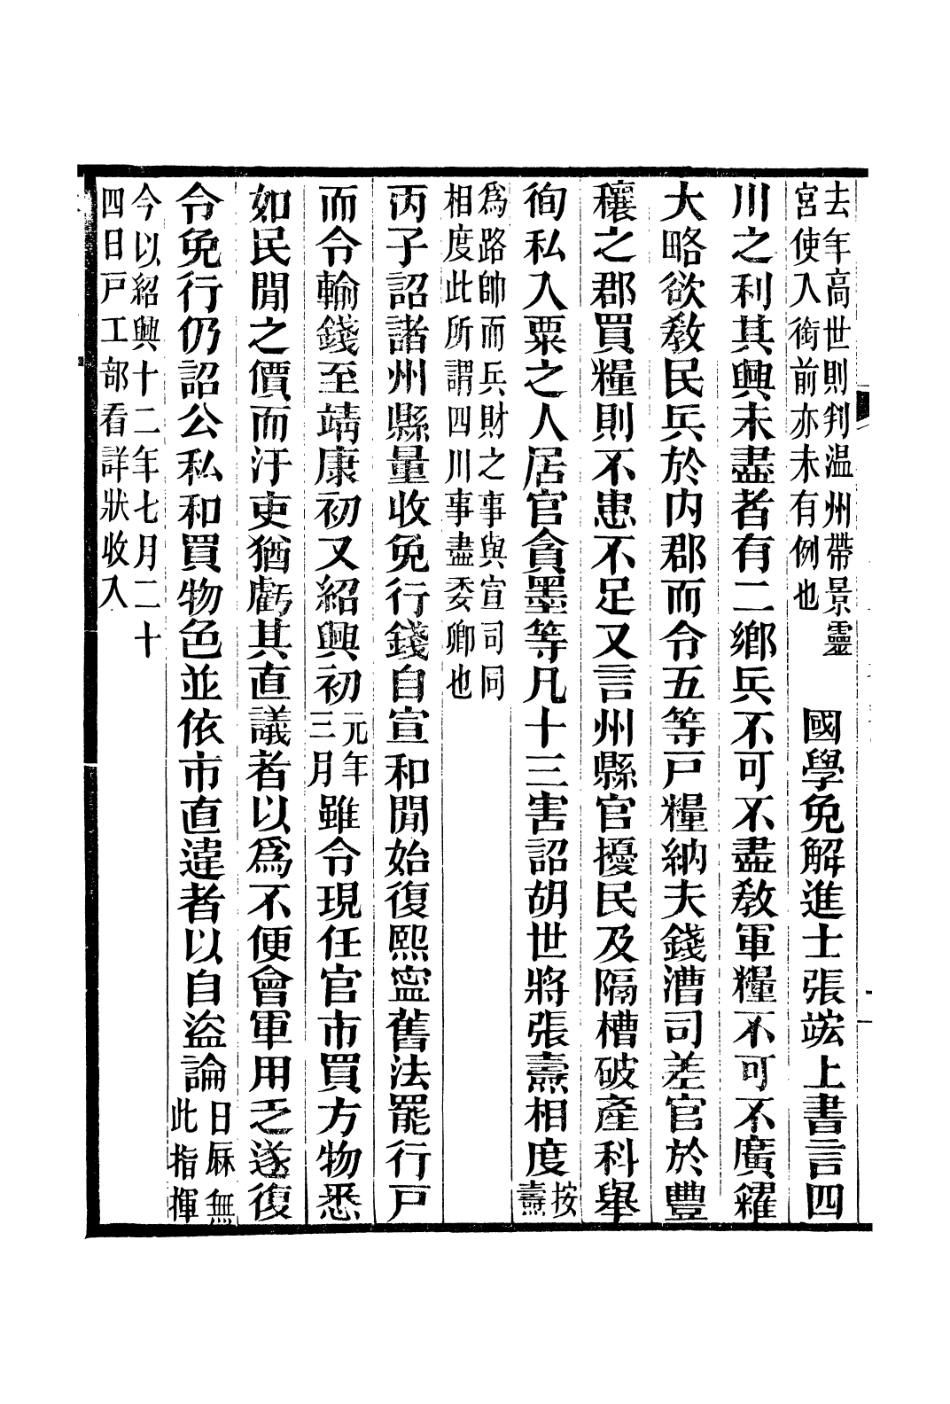 去年高世則判温州帶景靈
宮使入銜前亦未有例也
國學免解進士張竑上書言四
川之利其興未盡者有二鄉兵不可不盡教軍糧不可不廣糴
大略欲敎民兵於内郡而令五等戸糧納夫錢漕司差官於豐
穰之郡買糧則不患不足又言州縣官擾民及隔槽破產科舉
徇私入粟之人居官貪墨等凡十三害詔胡世將張燾相度
按
燾
爲路帥而兵財之事與宣司同
相度此所謂四川事盡委卿也
丙子詔諸州縣量收免行錢自宣和閒始復熙寧舊法罷行戸
而令輸錢至靖康初又紹興初
元年
三月
雖令現任官市買方物悉
如民閒之價而汙吏猶虧其直議者以爲不便會軍用乏遂復
令免行仍詔公私和買物色並依市直違者以自盜論
日厤無
此指揮
今以紹興十二年七月二十
四日戸工部看詳狀收入